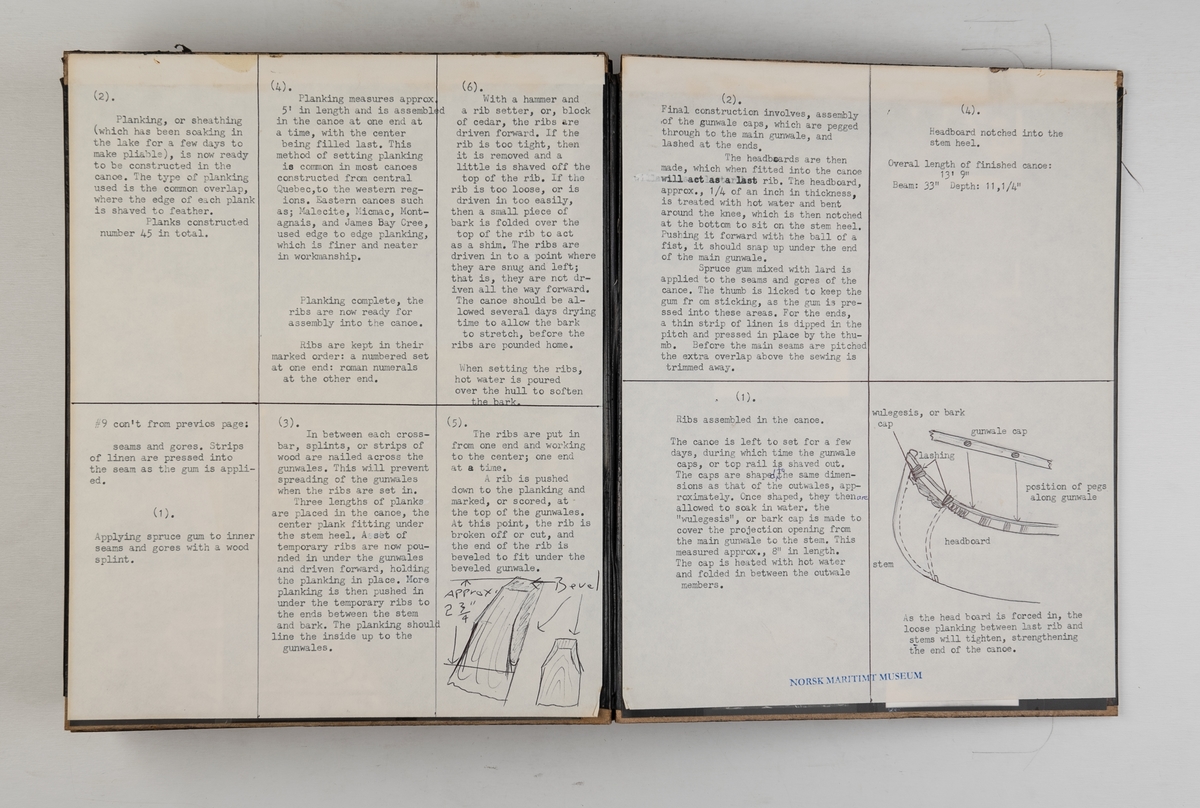 (2).
Planking, or sheathing
(which has been soaking in
the lake for a few days to
make pliable), is now ready
to be constructed in the
canoe. The type of planking
used is the common overlap,
where the edge of each plank
is shaved to feather.
Planks constructed
number 45 in total.
#9 con't from previos page;
seams and gores. Strips
of linen are pressed into
the seam as the gum is appli-
ed.
(1).
Applying spruce gum to inner
seams and gores with a wood
splint.
(4).
Planking measures approx.
5' in length and is assembled
in the canoe at one end at
a time, with the center
being filled last. This
method of setting planking
is common in most canoes
constructed from central
Quebec,to the western reg-
ions. Eastern canoes such
as; Malecite, Micmac, Mont-
agnais, and James Bay Cree,
used edge to edge planking,
which is finer and neater
in workmanship.
Planking complete, the
ribs are now ready for
assembly into the canoe.
Ribs are kept in their
marked order: a numbered set
at one end: roman numerals
at the other end.
(3).
In between each cross-
bar, splints, or strips of
wood are nailed across the
gunwales. This will prevent
spreading of the gunwales
when the ribs are set in.
Three lengths of planks
are placed in the canoe, the
center plank fitting under
the stem heel. A set of
temporary ribs are now pou-
nded in under the gunwales
and driven forward, holding
the planking in place. More
planking is then pushed in
under the temporary ribs to
the ends between the stem
and bark. The planking should
line the inside up to the
gunwales.
(6).
With a hammer and
a rib setter, or, block
of cedar, the ribs are
driven forward. If the
rib is too tight, then
it is removed and a
little is shaved off the
top of the rib. If the
rib is too loose, or is
driven in too easily,
then a small piece of
bark is folded over the
top of the rib to act
as a shim. The ribs are
driven in to a point where
they are snug and left;
that is, they are not dr-
iven all the way forward.
The canoe should be al-
lowed several days drying
time to allow the bark
to stretch, before the
ribs are pounded home.
When setting the ribs,
hot water is poured
over the hull to soften
the bark.
(5).
The ribs are put in
from one end and working
to the center; one end
at a time.
A rib is pushed
down to the planking and
marked, or scored, at
the top of the gunwales.
At this point, the rib is
broken off or cut, and
the end of the rib is
beveled to fit under the
beveled gunwale.
Approx.
2 3/4"
Bevel
(2).
Final construction involves, assembly
of the gunwale caps, which are pegged
through to the main gunwale, and
lashed at the ends.
The headboards are then
made, which when fitted into the canoe
will act as a last rib. The headboard,
approx., 1/4 of an inch in thickness,
is treated with hot water and bent
around the knee, which is then notched
at the bottom to sit on the stem heel.
Pushing it forward with the ball of a
fist, it should snap up under the end
of the main gunwale.
Spruce gum mixed with lard is
applied to the seams and gores of the
canoe. The thumb is licked to keep the
gum fr om sticking, as the gum is pre-
ssed into these areas. For the ends,
a thin strip of linen is dipped in the
pitch and pressed in place by the thu-
mb. Before the main seams are pitched
the extra overlap above the sewing is
trimmed away.
(1).
Ribs assembled in the canoe.
The canoe is left to set for a few
days, during which time the gunwale
caps, or top rail is shaved out.
The caps are shaped, the same dimen-
sions as that of the outwales, app-
roximately. Once shaped, they then are
allowed to soak in water. the
"wulegesis", or bark cap is made to
cover the projection opening from
the main gunwale to the stem. This
measured approx., 8" in length.
The cap is heated with hot water
and folded in between the outwale
members.
NORSK MARITIMT MUSEUM
(4).
Headboard notched into the
stem heel.
Overal length of finished canoe:
13' 9"
Beam: 33" Depth: 11,1/4"
wulegesis, or bark
cap
gunwale cap
lashing
position of pegs
along gunwale
headboard
stem
As the head board is forced in, the
loose planking between last rib and
stems will tighten, strengthening
the end of the canoe.